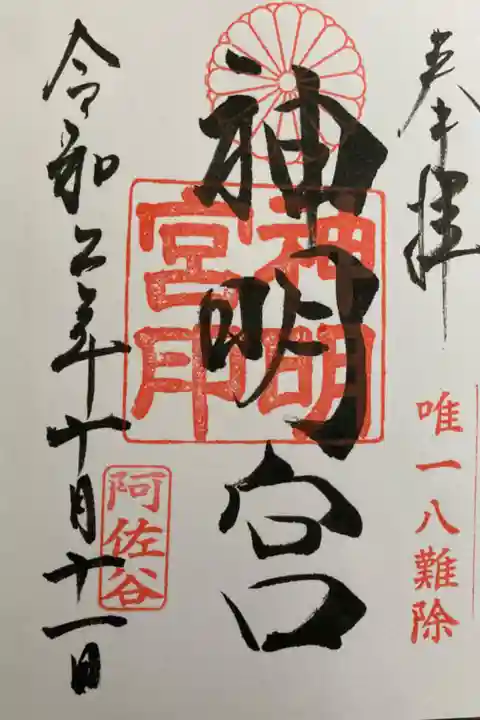 奉拝
唯一八難除
神明宮
神明
宮印
令和年十月十一日
阿佐谷